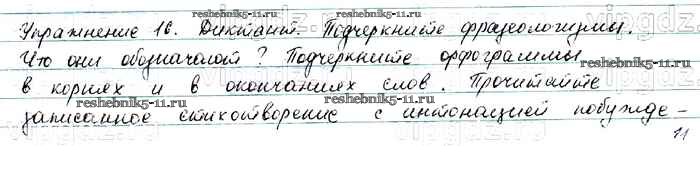 Упражнение 16. Диктант. Подчеркните фразеологизмы.
reshebnik5-11.ru reshebnik5-11.ru
Что они обозначают? Подчеркните орфограммы
в корнях и в окончаниях слов. Прочитайте
reshebnik5-11.ru reshebnik5-11.ru
записанное стихотворение с интонацией побужде-
11